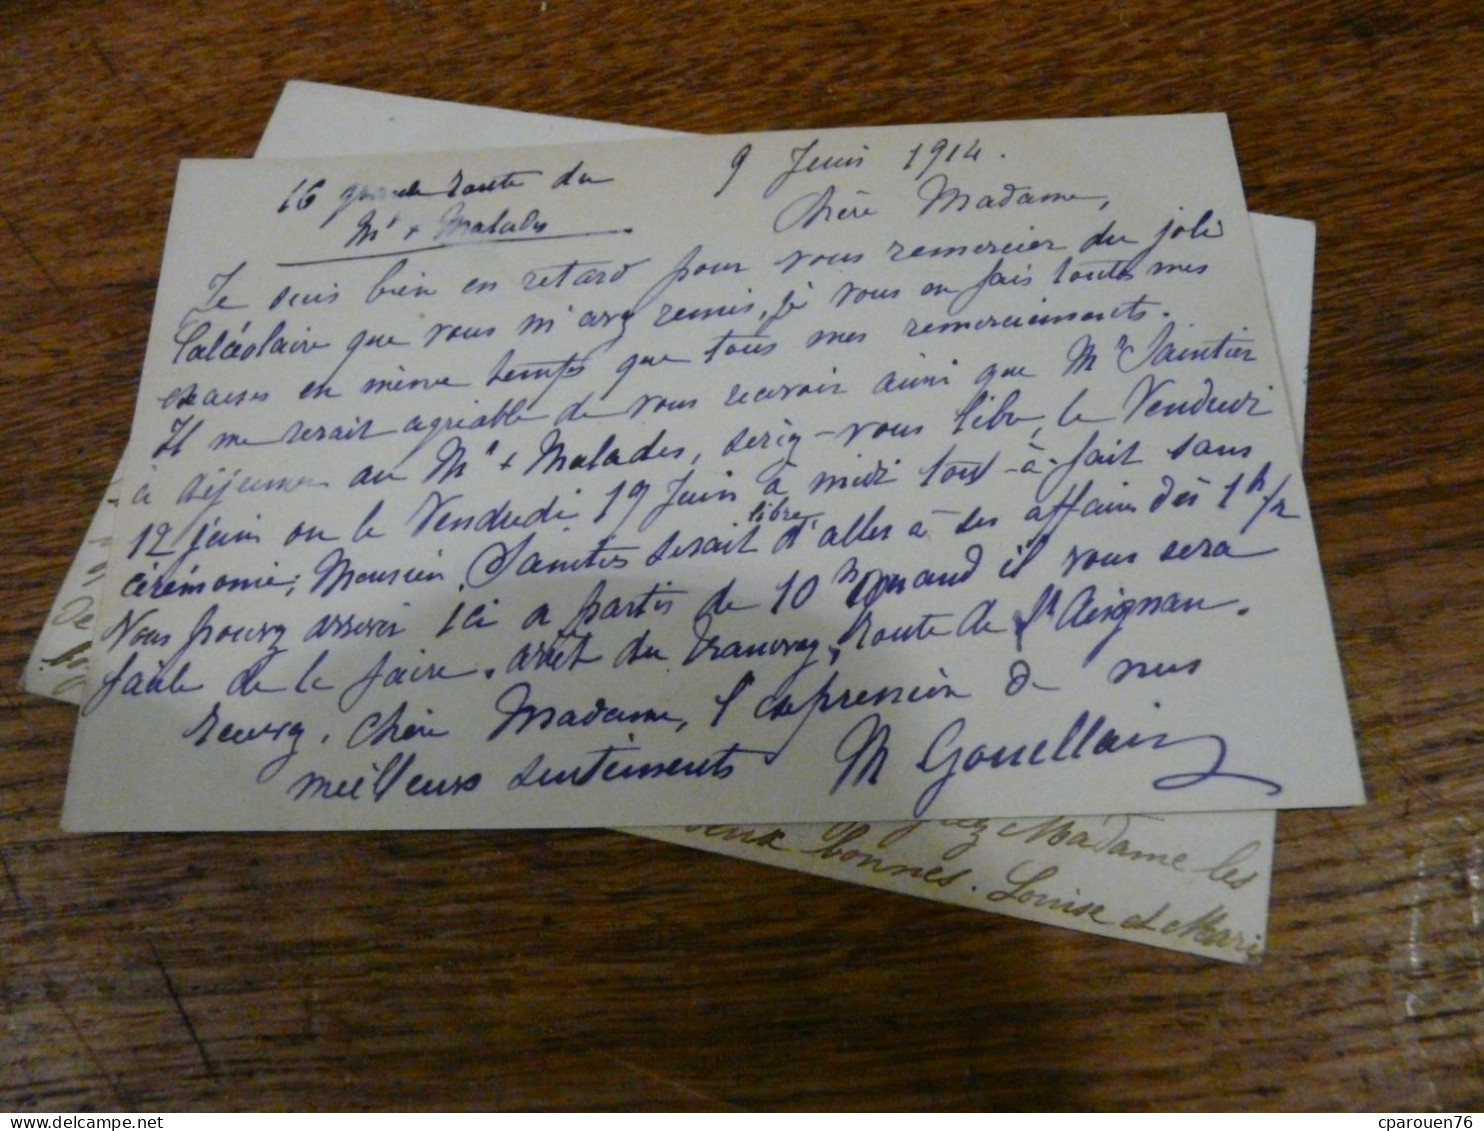 16 grande route du
Mt + Malades
9 Juin 1914.
Chère Madame,
Je suis bien en retard pour vous remercier du joli
Calcéolaire que vous m'avez remis, je vous en fais toutes mes
excuses en même temps que tous mes remerciements.
Il me serait agréable de vous recevoir ainsi que Mr Saintier
à déjeuner au Mt + Malades, seriez-vous libre, le Vendredi
12 juin ou le Vendredi 19 Juin à midi tout-à-fait sans
cérémonie; Monsieur Saintier serait libre d'aller à ses affaires dès 1h 1/2
Vous pouvez arriver ici à partir de 10 hs quand il vous sera
facile de le faire. arrêt du Tramway, route de St Aignan.
Recevez, chère Madame, l'expression de nos
meilleurs sentiments
M Gouellain
Madame les
deux bonnes. Louise et Marie
cparouen76